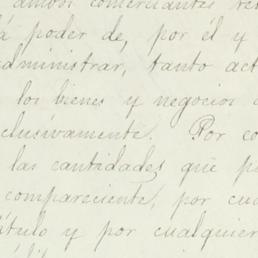 ambos comerciantes
á poder de, por él y
administrar, tanto act
los bienes y negocios
clusivamente. Por co
las cantidades que p
compareciente, por cua
título y por cualquier